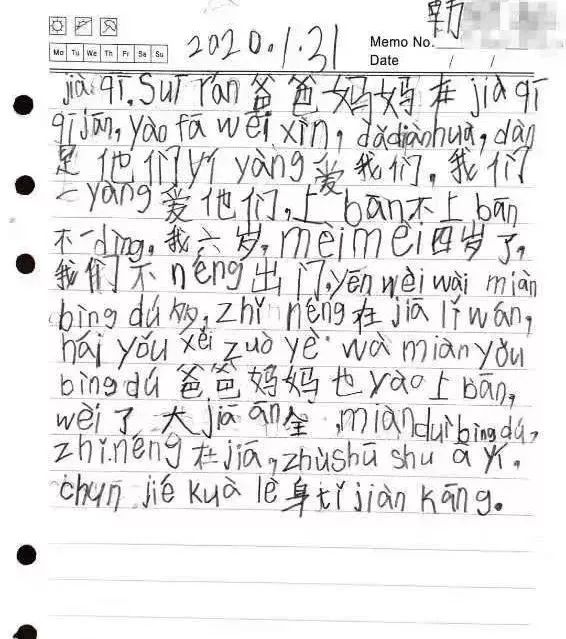 勒
2020.1.31
Memo No.
Mo Tu We Th Fr Sa Su
Date / /
jià qī. Suī rán 爸爸妈妈在 jià qī
qījiān, yào fā wēi xìn, dǎdiànhuà, dàn
是他们yí yàng 爱我们, 我们
一yàng 爱他们, 上 bān不上 bān
不一dìng. 我六岁, mèimèi四岁了,
我们不 néng出门, yēn wèi wài miàn
bìng dú 多, zhǐ néng在 jiā lǐ wán,
hái yǒu xěi zuò yè wà miàn yǒu
bìng dú 爸爸妈妈也 yào 上 bān,
wèi 了大 jiā ān全, miànduì bìng dú,
zhǐ néng 在 jiā, zhùshū shu ā yí.
chūn jié kuà lè 身tǐ jiàn kāng.